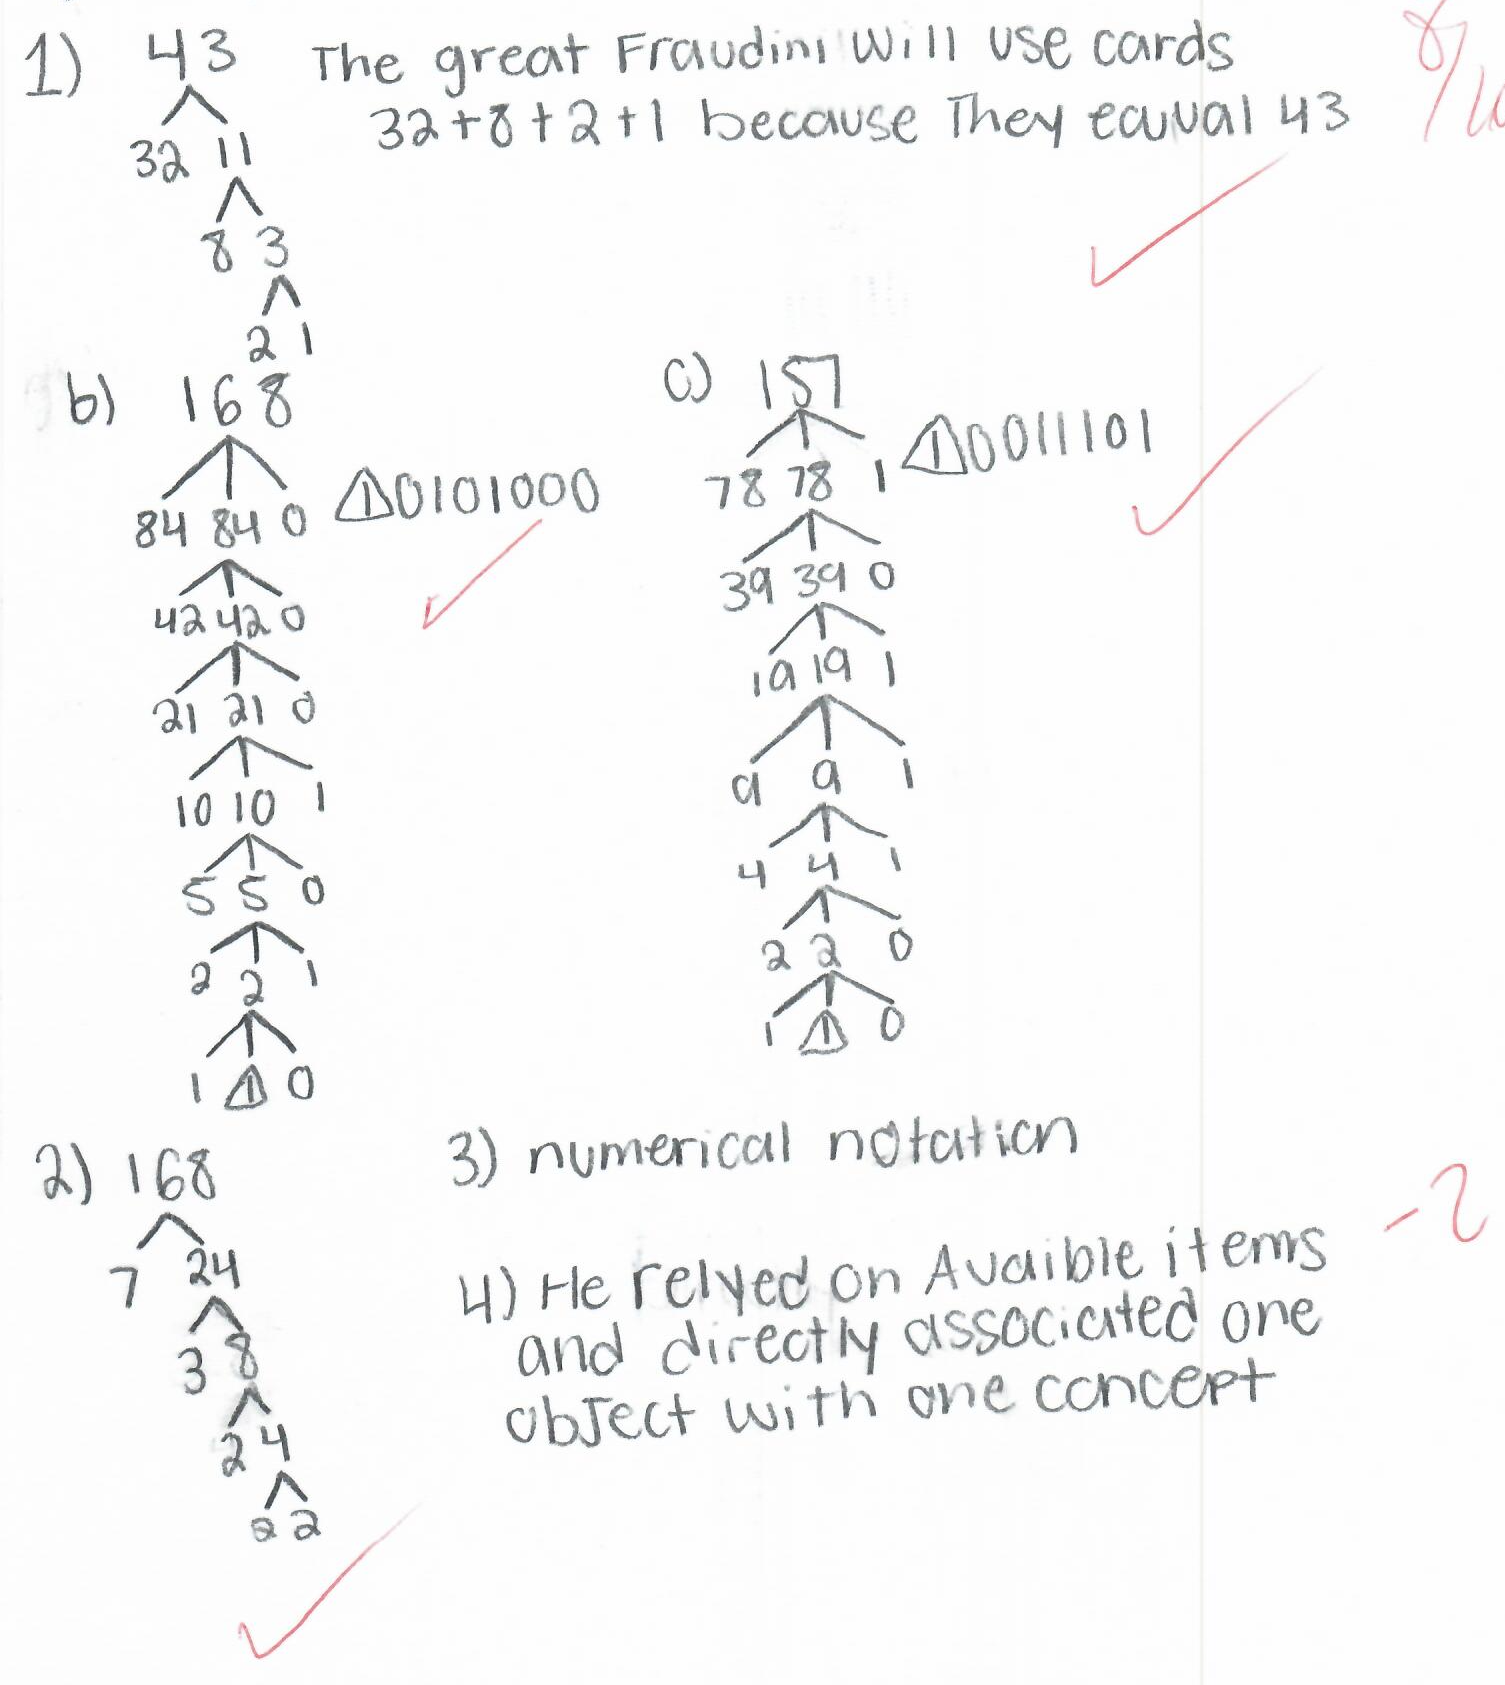 1) 43 The great Fraudini will use cards
32+8+2+1 because They eauual 43
8/10
32 11
8 3
2 1
b) 168
84 84 0
10101000
42 42 0
21 21 0
10 10 1
5 5 0
2 2 1
1 1 0
c) 157
10011101
78 78 1
39 39 0
19 19 1
9 9 1
4 4 1
2 2 0
1 1 0
2) 168
7 24
3 8
2 4
2 2
3) numerical notation
-2
4) He relyed on Avaible items
and directly associated one
object with one concept